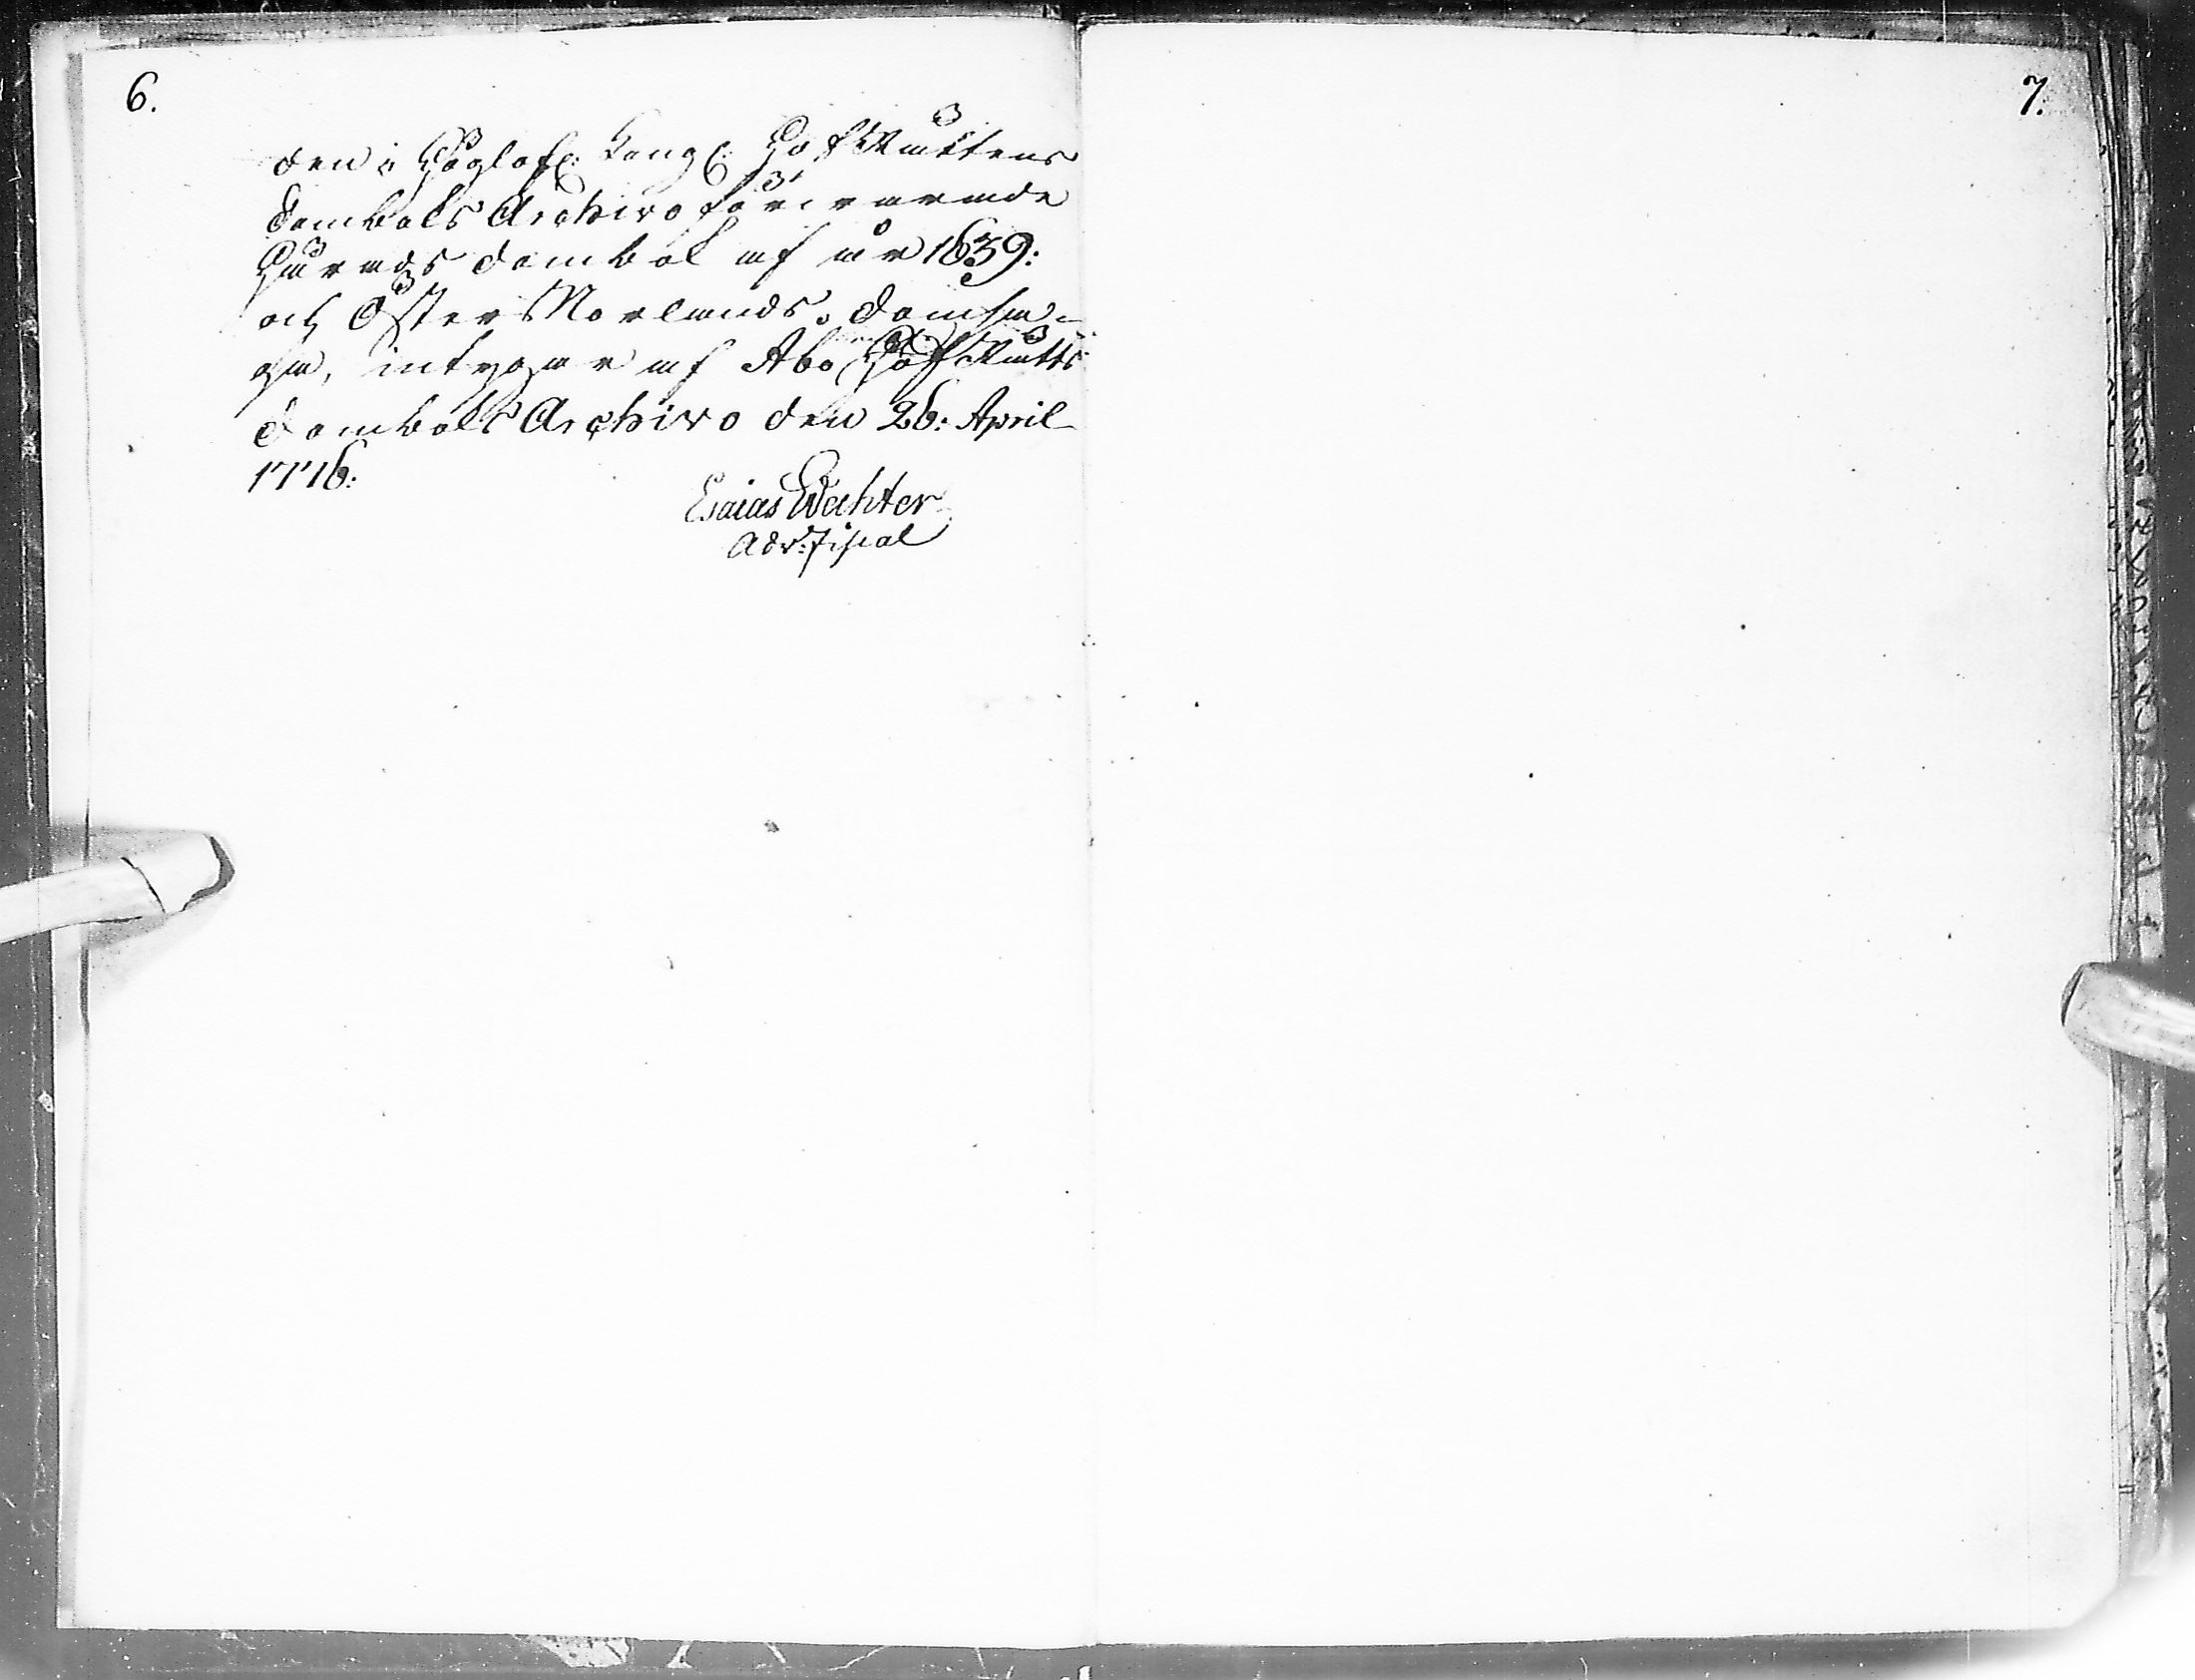 6.
den i Höglofl: Kongl: HofRättens
Domboks Archivo förvarade
Härads Dombok af år 1639:
och Öster Norlands. Domsa-
ga, intygar af Åbo HofRätts
Domboks Archivo den 26: April
1776:
Esaias Wechter
Adv:Fiscal
7.